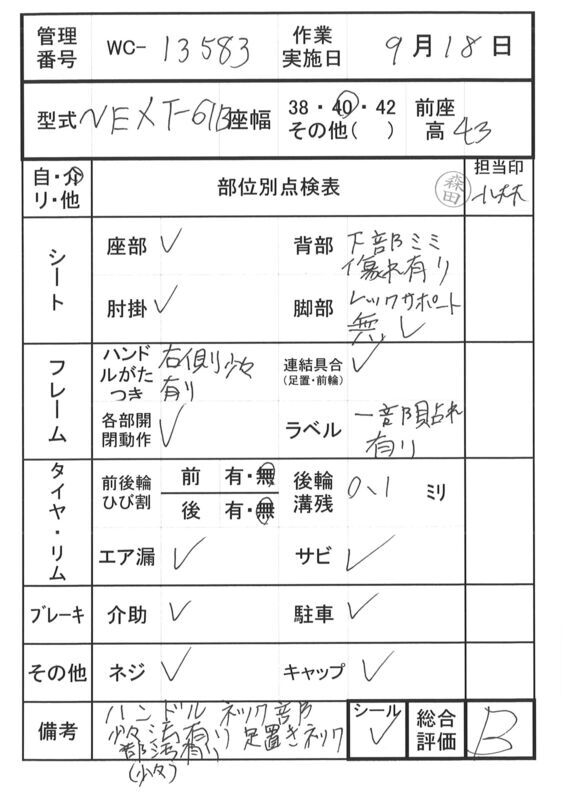 管理番号 WC- 13583 作業実施日 9月18日
型式 NEXT-61B 座幅 38・40・42 その他( ) 前座高 43
自・介 リ・他 部位別点検表 森田 担当印
シート 座部 ✓ 背部 下部ミミ
傷れ有り
肘掛 ✓ 脚部 レッグサポート
無 ✓
フレーム ハンドルがたつき 右側少々
有り 連結具合 (足置・前輪) ✓
各部開閉動作 ✓ ラベル 一部貼れ
有り
タイヤ・リム 前後輪ひび割 前 有・無 後輪溝残 0、1 ミリ
後 有・無
エア漏 ✓ サビ ✓
ブレーキ 介助 ✓ 駐車 ✓
その他 ネジ ✓ キャップ ✓
備考 ハンドル ネック部
少々汚有り 足置きネック
部汚有り
(少々)
シール ✓ 総合評価 B